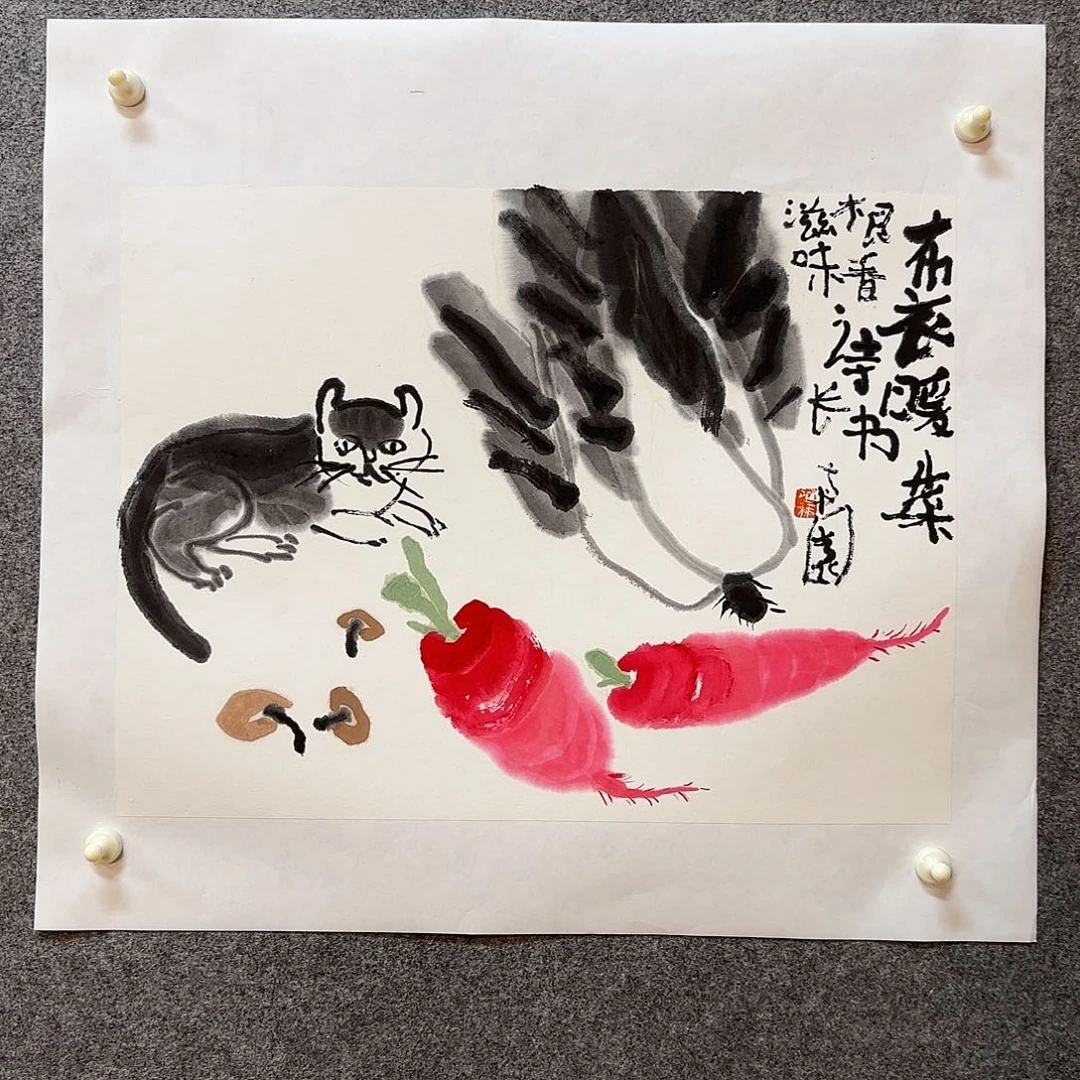 布衣暖菜
根香诗书
滋味长